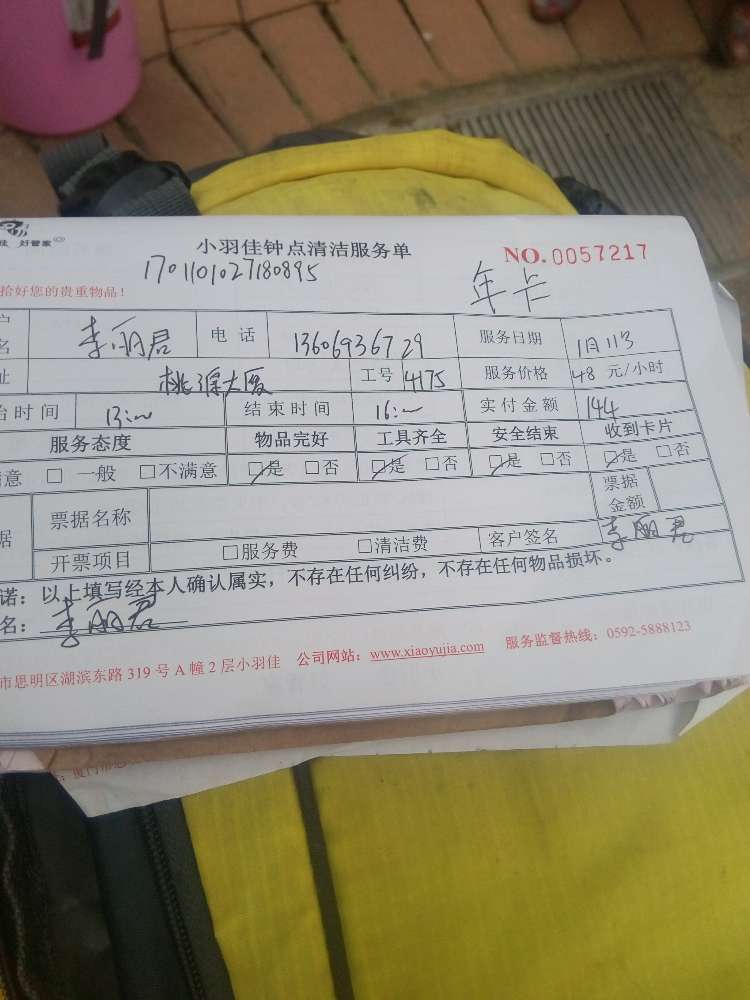 好管家
小羽佳钟点清洁服务单 NO.0057217
1701101027180895 年卡
拾好您的贵重物品！
李丽君 电话 13606936729 服务日期 1月11号
址 桃源大厦 工号 4175 服务价格 48 元/小时
始时间 13:00 结束时间 16:00 实付金额 144
服务态度 物品完好 工具齐全 安全结束 收到卡片
满意 □一般 □不满意 ☑是 □否 ☑是 □否 ☑是 □否 ☑是 □否
据 票据名称 票据金额
开票项目 □服务费 □清洁费 客户签名 李丽君
诺：以上填写经本人确认属实，不存在任何纠纷，不存在任何物品损坏。
名：李丽君
市思明区湖滨东路 319 号 A 幢 2 层小羽佳 公司网站：www.xiaoyujia.com 服务监督热线：0592-5888123